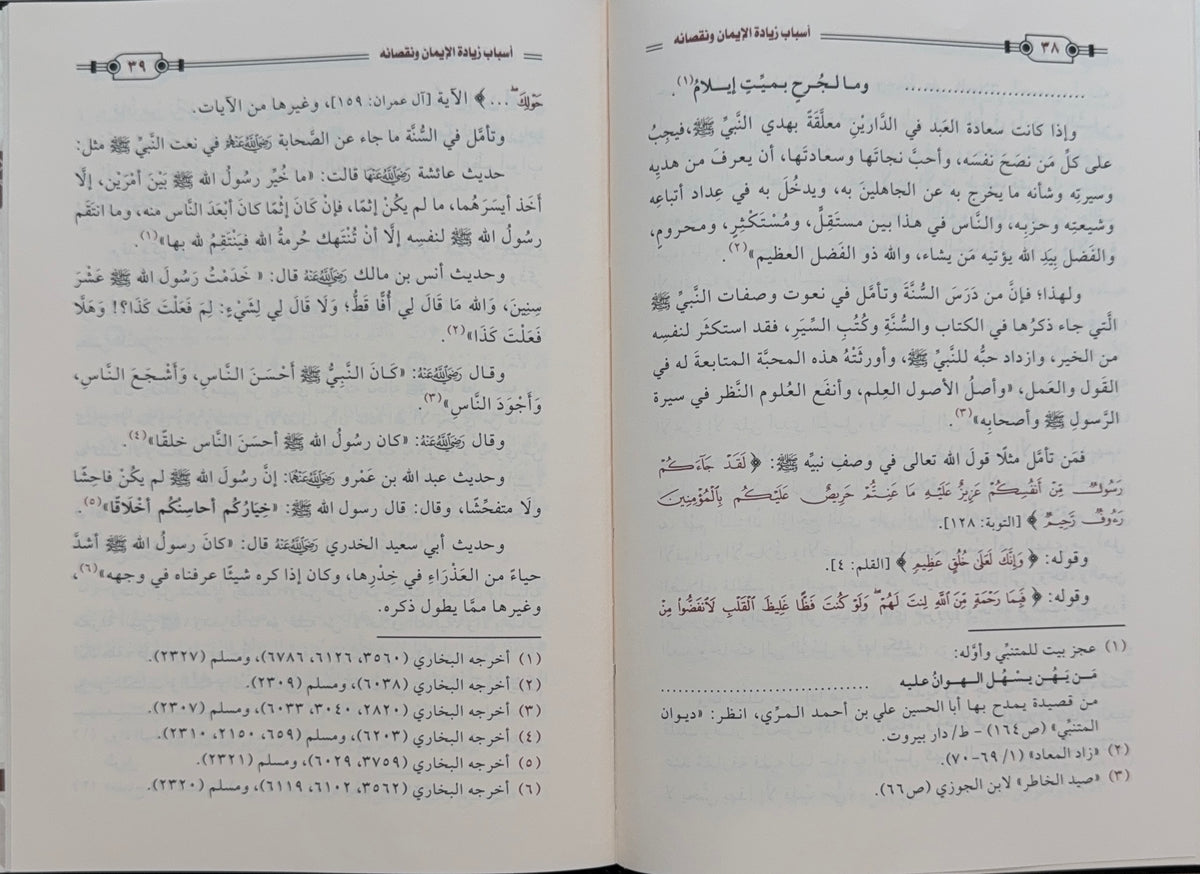 ٣٨
أسباب زيادة الإيمان ونقصانه
.............................. وما لجُرحٍ بميِّتٍ إيلامُ(١).
وإذا كانت سعادة العَبد في الدَّاريْنِ معلَّقَةً بهدي النَّبيِّ ﷺ، فيجِبُ
على كلِّ مَن نصَحَ نفسَه، وأحبَّ نجاتَها وسعادتَها، أن يعرفَ من هديِه
وسيرتِه وشأنه ما يخرج به عن الجاهلينَ به، ويدخُلَ به في عِداد أتباعِه
وشيعتِه وحزبِه، والنَّاس في هذا بين مستَقِلٍّ، ومُسْتَكْثِرٍ، ومَحرومٍ،
والفَضل بِيَدِ الله يؤتيه مَن يشاء، والله ذو الفَضل العظيم»(٢).
ولهذا؛ فإنَّ من دَرَسَ السُّنَّةَ وتأمَّل في نعوت وصفات النَّبيِّ ﷺ
الَّتي جاء ذكرُها في الكتاب والسُّنَّةِ وكُتُبِ السِّيَر، فقد استكثَر لنفسِه
من الخير، وازداد حبُّه للنَّبيِّ ﷺ، وأورثَتْهُ هذه المحبَّة المتابعةَ له في
القَول والعَمل، «وأصلُ الأصول العِلم، وأنفَع العُلوم النَّظر في سيرة
الرَّسولِ ﷺ وأصحابِه»(٣).
فمَن تأمَّل مثلًا قولَ الله تعالى في وصفِ نبيِّه ﷺ: ﴿ لَقَدْ جَآءَكُمْ
رَسُولٌ مِّنْ أَنفُسِكُمْ عَزِيزٌ عَلَيْهِ مَا عَنِتُّمْ حَرِيصٌ عَلَيْكُم بِالْمُؤْمِنِينَ
رَءُوفٌ رَّحِيمٌ ﴾ [التوبة: ١٢٨].
وقوله: ﴿ وَإِنَّكَ لَعَلَى خُلُقٍ عَظِيمٍ ﴾ [القلم: ٤].
وقوله: ﴿ فَبِمَا رَحْمَةٍ مِّنَ اللَّهِ لِنتَ لَهُمْ ۖ وَلَوْ كُنتَ فَظًّا غَلِيظَ الْقَلْبِ لَانفَضُّوا مِنْ
(١) عجز بيت للمتنبِّي وأوَّله:
مَـن يَهُـن يسْـهُل الهـوانُ عليه ..............................
من قصيدة يمدح بها أبا الحسين علي بن أحمد المرِّي، انظر: «ديوان
المتنبِّي» (ص١٦٤) - ط/ دار بيروت.
(٢) «زاد المعاد» (١/ ٦٩-٧٠).
(٣) «صيد الخاطر» لابن الجوزي (ص٦٦).
أسباب زيادة الإيمان ونقصانه
٣٩
حَوْلِكَ ۖ ... ﴾ الآية [آل عمران: ١٥٩]، وغيرها من الآيات.
وتأمَّل في السُّنَّة ما جاء عن الصَّحابة رَضِيَاللَّهُعَنْهُمْ في نعت النَّبيِّ ﷺ مثل:
حديث عائشة رَضِيَاللَّهُعَنْهَا قالت: «ما خُيِّر رسُولُ الله ﷺ بَيْنَ أمْرَيْن، إلَّا
أَخَذ أيسَرَهُما، ما لم يكُنْ إثمًا، فإنْ كَانَ إثْمًا كانَ أبْعَدَ النَّاس منه، وما انتَقَم
رسُولُ الله ﷺ لنفسِه إلَّا أنْ تُنْتَهك حُرمةُ الله فيَنْتَقِمُ لله بها»(١).
وحديث أنس بن مالك رَضِيَاللَّهُعَنْهُ قال: « خَدَمْتُ رَسُولَ الله ﷺ عَشْرَ
سِنِينَ، وَالله مَا قَالَ لِي أُفًّا قَطُّ؛ وَلَا قَالَ لِي لِشَيْءٍ: لِمَ فَعَلْتَ كَذَا؟! وَهَلَّا
فَعَلْتَ كَذَا»(٢).
وقـال رَضِيَاللَّهُعَنْهُ: «كَـانَ النَّبِـيُّ ﷺ أَحْسَـنَ النَّـاسِ، وَأَشْـجَعَ النَّـاسِ،
وَأَجْوَدَ النَّاسِ»(٣)
وقال رَضِيَاللَّهُعَنْهُ: «كان رسُولُ الله ﷺ أحسَنَ النَّاس خلقًا»(٤).
وحديث عبد الله بن عَمْرو رَضِيَاللَّهُعَنْهُمَا: إنَّ رسُولَ الله ﷺ لم يكُنْ فاحِشًا
ولَا متفحِّشًا، وقال: قال رسول الله ﷺ: «خِيَارُكُم أحاسِنكُم أخْلَاقًا»(٥).
وحديث أبي سعيد الخدري رَضِيَاللَّهُعَنْهُ قال: «كانَ رسولُ الله ﷺ أشدَّ
حياءً من العَذْرَاءِ في خِدْرِها، وكان إذا كره شيئًا عرفناه في وجهه»(٦)،
وغيرها ممَّا يطول ذكره.
(١) أخرجه البخاري (٣٥٦٠، ٦١٢٦، ٦٧٨٦)، ومسلم (٢٣٢٧).
(٢) أخرجه البخاري (٦٠٣٨)، ومسلم (٢٣٠٩).
(٣) أخرجه البخاري (٢٨٢٠، ٣٠٤٠، ٦٠٣٣)، ومسلم (٢٣٠٧).
(٤) أخرجه البخاري (٦٢٠٣)، ومسلم (٦٥٩، ٢١٥٠، ٢٣١٠).
(٥) أخرجه البخاري (٣٧٥٩، ٦٠٢٩)، ومسلم (٢٣٢١).
(٦) أخرجه البخاري (٣٥٦٢، ٦١٠٢، ٦١١٩)، ومسلم (٢٣٢٠).